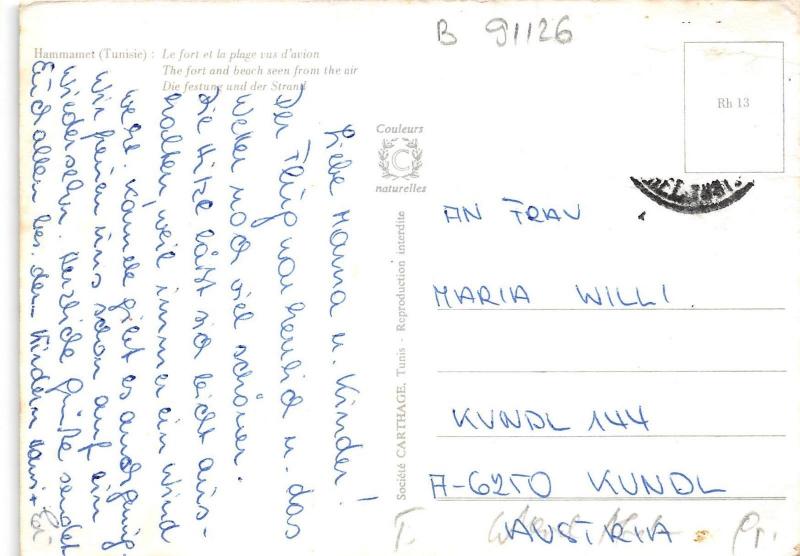 B 91126
Hammamet (Tunisie) : Le fort et la plage vus d'avion
The fort and beach seen from the air
Die festung und der Strand
Rh 13
Couleurs
C
naturelles
Société CARTHAGE, Tunis - Reproduction interdite
Liebe Mama u. Kinder!
Der Flug war herrlich u. das
Wetter noch viel schöner.
Die Hitze läßt sich leicht aus-
halten, weil immer ein Wind
weht. Kamele gibt es auch genug.
Wir freuen uns schon auf ein
Wiedersehn. Herzliche Grüße sendet
Euch allen bes. den Kindern
AN FRAU
MARIA WILLI
KUNDL 144
A-6250 KUNDL
AUSTRIA
T.